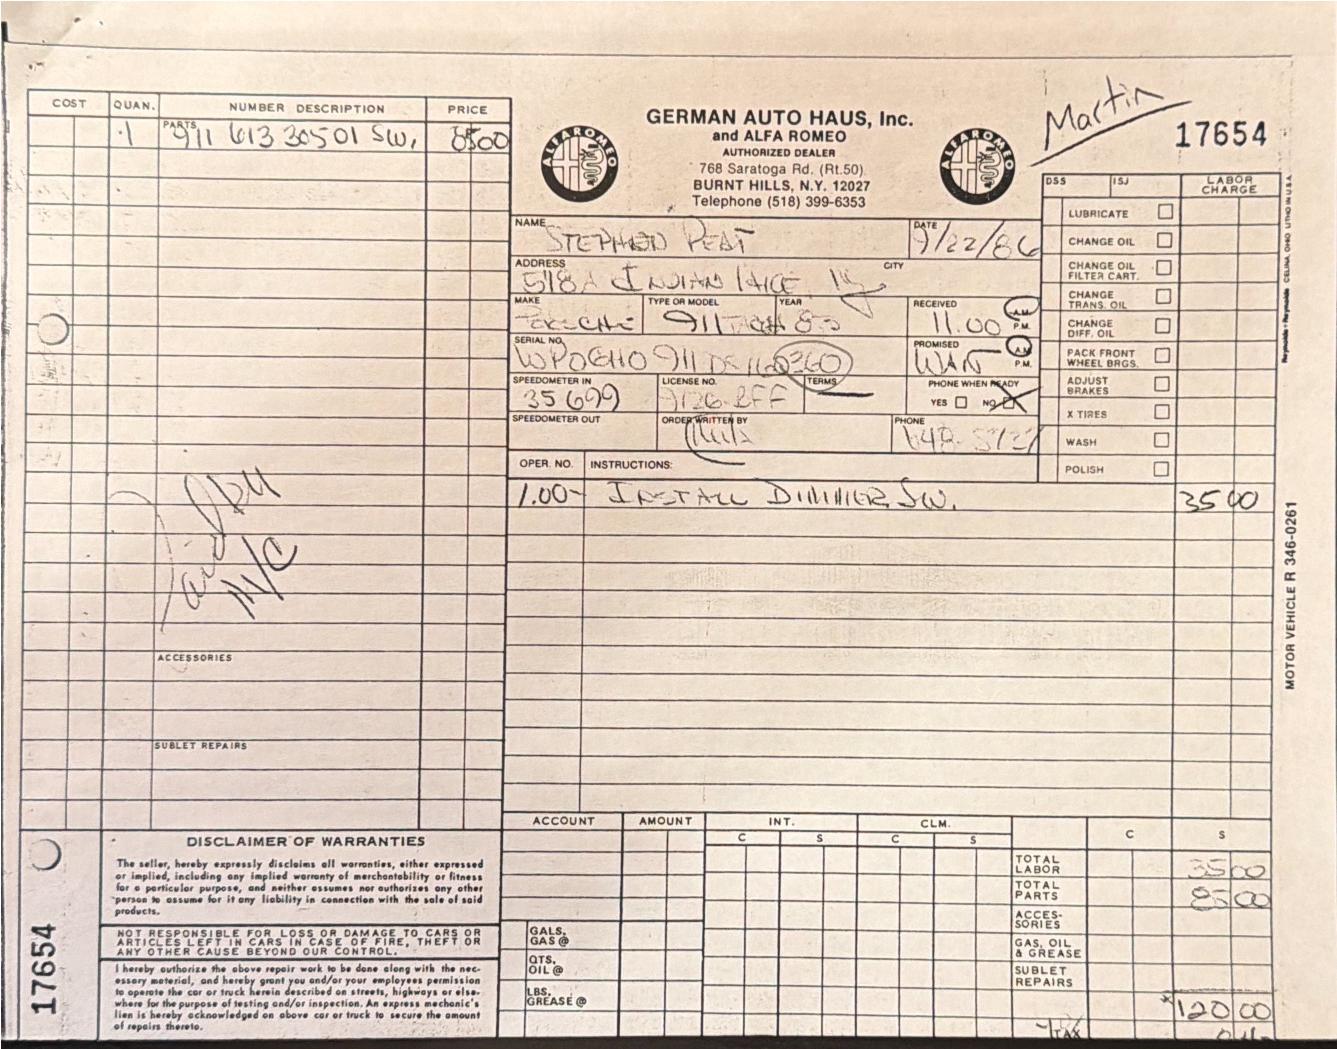 COST QUAN. NUMBER DESCRIPTION PRICE
PARTS
1 911 613 30501 SW. 8500
ACCESSORIES
SUBLET REPAIRS
Paid
M/C
GERMAN AUTO HAUS, Inc.
and ALFA ROMEO
AUTHORIZED DEALER
768 Saratoga Rd. (Rt.50)
BURNT HILLS, N.Y. 12027
Telephone (518) 399-6353
ALFA ROMEO
ALFA ROMEO
Martin
17654
NAME STEPHEN PEAT DATE 9/22/86
ADDRESS 518A INDIAN CITY
MAKE PORSCHE TYPE OR MODEL 911 YEAR RECEIVED 11.00 A.M. P.M.
SERIAL NO. PROMISED A.M. P.M.
SPEEDOMETER IN 35699 LICENSE NO. TERMS PHONE WHEN READY
YES NO
SPEEDOMETER OUT ORDER WRITTEN BY PHONE
DSS ISJ LABOR CHARGE
LUBRICATE
CHANGE OIL
CHANGE OIL
FILTER CART.
CHANGE
TRANS. OIL
CHANGE
DIFF. OIL
PACK FRONT
WHEEL BRGS.
ADJUST
BRAKES
X TIRES
WASH
POLISH
OPER. NO. INSTRUCTIONS:
1.00- INSTALL DIMMER SW. 3500
MOTOR VEHICLE R 346-0261
Reynolds + Reynolds CELINA, OHIO LITHO IN U.S.A.
DISCLAIMER OF WARRANTIES
The seller, hereby expressly disclaims all warranties, either expressed
or implied, including any implied warranty of merchantability or fitness
for a particular purpose, and neither assumes nor authorizes any other
person to assume for it any liability in connection with the sale of said
products.
NOT RESPONSIBLE FOR LOSS OR DAMAGE TO CARS OR
ARTICLES LEFT IN CARS IN CASE OF FIRE, THEFT OR
ANY OTHER CAUSE BEYOND OUR CONTROL.
I hereby authorize the above repair work to be done along with the nec-
essary material, and hereby grant you and/or your employees permission
to operate the car or truck herein described on streets, highways or else-
where for the purpose of testing and/or inspection. An express mechanic's
lien is hereby acknowledged on above car or truck to secure the amount
of repairs thereto.
17654
ACCOUNT AMOUNT INT. CLM.
C S C S C S
GALS,
GAS @
QTS,
OIL @
LBS,
GREASE @
TOTAL
LABOR 3500
TOTAL
PARTS 8500
ACCES-
SORIES
GAS, OIL
& GREASE
SUBLET
REPAIRS
12000
TAX